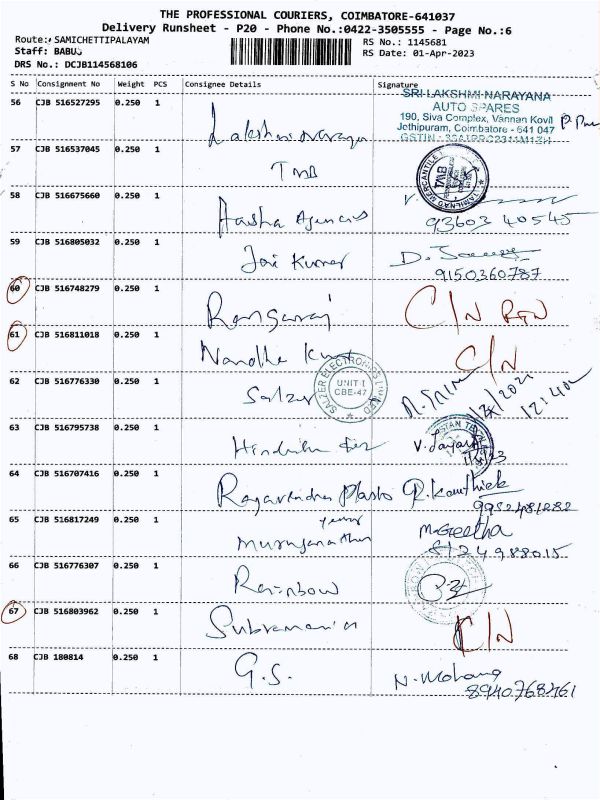 THE PROFESSIONAL COURIERS, COIMBATORE-641037
Delivery Runsheet - P20 - Phone No.:0422-3505555 - Page No.:6
Route: SAMICHETTIPALAYAM
RS No.: 1145681
Staff: BABU
RS Date: 01-Apr-2023
DRS No.: DCJB114568106
S No Consignment No Weight PCS Consignee Details Signature
56 CJB 516527295 0.250 1
SRI LAKSHMI NARAYANA
AUTO SPARES
190, Siva Complex, Vannan Kovil
Jethipuram, Coimbatore - 641 047
Lakshmi Narayana
57 CJB 516537045 0.250 1
TMB
TMB
58 CJB 516675660 0.250 1
Harsha Agencies
93603 40545
59 CJB 516805032 0.250 1
Jai Kumar
9150360787
60 CJB 516748279 0.250 1
Rangaraj C/N RTN
61 CJB 516811018 0.250 1
Nandha C/N
62 CJB 516776330 0.250 1
Salzer
SALZER ELECTRONICS LIMITED
UNIT I
CBE-47
63 CJB 516795738 0.250 1
64 CJB 516707416 0.250 1
Ragavendra Plasto R. Kauthick
9952481282
65 CJB 516817249 0.250 1
Murugananthan
M. Geetha
8124988015
66 CJB 516776307 0.250 1
Rainbow
67 CJB 516803962 0.250 1
Subramanian C/N
68 CJB 180814 0.250 1
G.S.
N. Mohana
8940768461